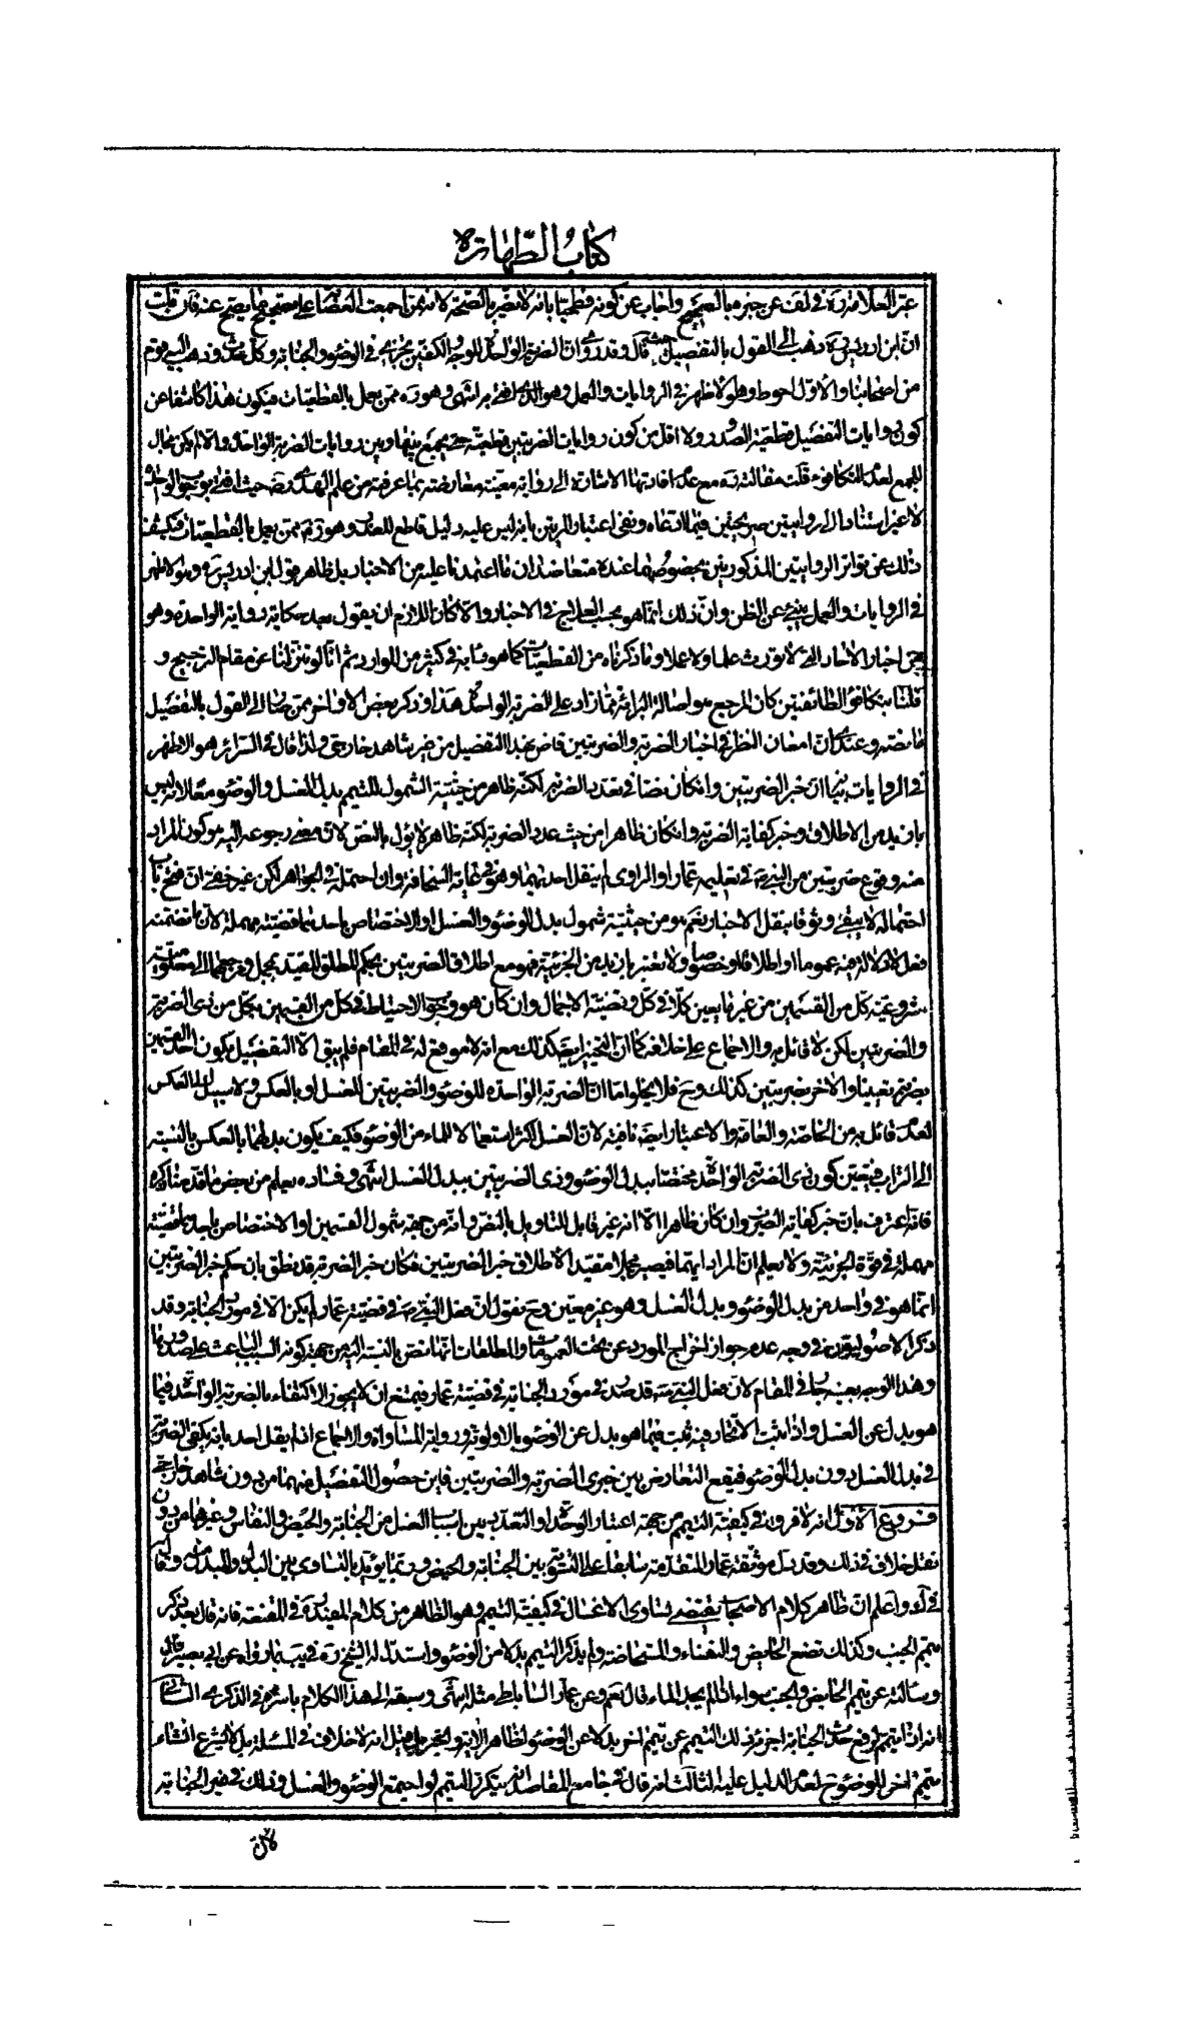 كتاب الطهارة
عبر العلامة ره في لف عن خبره بالصحيح واجاب عن كونه فطحيا بانه لا يضر بالصحة لانه ممن اجمعت العصابة على تصحيح ما يصح عنه فان قلت
ان ابن ادريس ره ذهب الى القول بالتفصيل حيث قال وقد روى ان الضربة الواحدة للوجه والكفين يجزى في الوضوء والجنابة وكل حدث وذهب اليه قوم
من اصحابنا والاول احوط وهو الاظهر في الروايات والعمل وهو الذي افتى به انتهى وهو ره ممن يعمل بالقطعيات فيكون هذا كاشفا عن
كون روايات التفصيل قطعية الصدور ولا اقل من كون روايات الضربتين قطعية حتى يجمع بينها وبين روايات الضربة الواحدة والا لم يكن مجال
للجمع لعدم التكافؤ قلت مقالته ره مع عدم افادتها الاشارة الى رواية معينة معارضة بما عرفته من علم الهدى رض حيث افتى بوجوب الواحدة
لا غير استنادا الى روايتين صريحتين فيما ادعاه ونفى اعتبار المرتين بانه ليس عليه دليل قاطع للعذر وهو ره ممن يعمل بالقطعيات فيكشف
ذلك عن تواتر الروايتين المذكورتين بخصوصهما عنده متعاضدا ان ما اعتمد عليه من الاخبار بل ظاهر قول ابن ادريس ره وهو الاظهر
في الروايات والعمل ينبئ عن الظن وان ذلك انما هو بحسب العلاج في الاخبار والا كان اللازم ان يقول بعد حكاية رواية الواحدة وهو
من اخبار الاحاد التي لا تورث علما ولا عملا وما ذكرناه من القطعيات كما هو دأبه في كثير من الموارد ثم انا لو تنزلنا عن مقام الترجيح و
قلنا بتكافؤ الطائفتين كان المرجع هو اصالة البراءة مما زاد على الضربة الواحدة هذا وذكر بعض الاواخر ممن صار الى القول بالتفصيل
ما نصه وعندي ان امعان النظر في اخبار الضربة والضربتين قاض بهذا التفصيل من غير شاهد خارجي ولذا قال في السرائر هو الاظهر
في الروايات بيان ان خبر الضربتين وان كان نصا في تعدد الضربة لكنه ظاهر من حيثية الشمول للتيمم بدل الغسل والوضوء معا لانه ليس
بازيد من الاطلاق وخبر كفاية الضربة وان كان ظاهرا من حيث عدد الضربة لكنه ظاهر لا يؤل بالنص لان معنى رجوعه اليه هو كون المراد
منه وقوع ضربتين من النبي ص في تعليمه عمار او الراوي لم ينقل احديهما وهو في غاية السخافة وان احتمله في الجواهر لكن غير خفي ان فتح باب
احتماله لا يبقى وثوقا بنقل الاخبار نعم هو من حيثية شمول بدل الوضوء والغسل او الاختصاص باحدهما قضية مهملة لان ما تضمنه
فعل لا دلالة فيه عموما او اطلاقا او خصوصا ولا يعتبر بازيد من الجزئية فهو مع اطلاق الضربتين بحكم المطلق المقيد بمجمل ومرجعهما الى معلومية
شرعية كل من القسمين من غير ما يعين كلا في كل وقضية الاجمال وان كان هو وجوب الاحتياط في كل من القسمين بكل من ذى الضربة
والضربتين لكن لا قائل به والاجماع على خلافه كما ان التخيير ايضا كذلك مع انه لا موقع له في المقام فلم يبق الا التفصيل بكون احد القسمين
بضربة تعيينا والاخر بضربتين كذلك وح فلا يخلو اما ان الضربة الواحدة للوضوء والضربتين للغسل او بالعكس ولا سبيل الى العكس
لعدم قائل به من الخاصة والعامة والاعتبار ايضا نافية لان الغسل اكثر استعمالا للماء من الوضوء فكيف يكون بدلهما بالعكس بالنسبة
الى التراب فيتعين كون ذى الضربة الواحدة مختصا ببدل الوضوء وذى الضربتين ببدل الغسل انتهى وفساده يعلم من بعض ما قدمنا ذكره
فانه اعترف بان خبر كفاية الضربة وان كان ظاهرا الا انه غير قابل للتاويل بالنص وانه من جهة شمول القسمين او الاختصاص باحدهما قضية
مهملة في قوة الجزئية ولا يعلم ان المراد ايهما فيصير مجملا مقيدا لاطلاق خبر الضربتين فكان خبر الضربة قد نطق بان حكم خبر الضربتين
انما هو في واحد من بدل الوضوء وبدل الغسل وهو غير معين وح نقول ان فعل النبي ص في قضية عمار لم يكن الا في مورد الجنابة وقد
ذكر الاصوليون في وجه عدم جواز اخراج المورد عن تحت العمومات والمطلقات انها نص بالنسبة اليه من جهة كونه السبب الباعث على صدورها
وهذا الوجه بعينه جار في المقام لان فعل النبي ص قد صدر في مورد الجنابة في قضية عمار فيمتنع ان لا يجوز الاكتفاء بالضربة الواحدة فيما
هو بدل عن الغسل واذا ثبت الاتحاد فيه ثبت فيما هو بدل عن الوضوء بالاولوية ورواية المساواة والاجماع اذ لم يقل احد بانه يكفي الضربة
في بدل الغسل دون بدل الوضوء فيقع التعارض بين خبرى الضربة والضربتين فاين حصول التفصيل منهما من دون شاهد خارجي
فروع الاول انه لا فرق في كيفية التيمم من جهة اعتبار الوحدة او التعدد بين اسباب الغسل من الجنابة والحيض والنفاس وغيرها من دون
نقل خلاف في ذلك وقد دل موثقة عمار المتقدمة سابقا على التسوية بين الجنابة والحيض وربما يؤيد بالتساوى بين البدل والمبدل منه وقال
في ك واعلم ان ظاهر كلام الاصحاب يقتضى تساوى الاغسال في كيفية التيمم وهو الظاهر من كلام المفيد ره في المقنعة فانه قال بعد ذكر
تيمم الجنب وكذلك تصنع الحايض والنفساء والمستحاضة ولم يذكر التيمم بدلا من الوضوء واستدل له الشيخ ره في يب بما رواه عن ابي بصير قال
وسالته عن تيمم الحايض والجنب سواء اذا لم يجد الماء قال نعم وعن عمار الساباطي مثله انتهى وسبقه الى هذا الكلام باسره في الذكرى الثاني
انه اذا تيمم لرفع حدث الجنابة اجزء ذلك التيمم عن تيمم اخر بدلا عن الوضوء لظاهر الاية والخبر بل قيل انه لا خلاف في المسئلة بل لا يشرع انشاء
تيمم اخر للوضوء ح لعدم الدليل عليه الثالث انه قال في جامع المقاصد يتكرر التيمم لو اجتمع الوضوء والغسل وذلك في غير الجنابة
لان